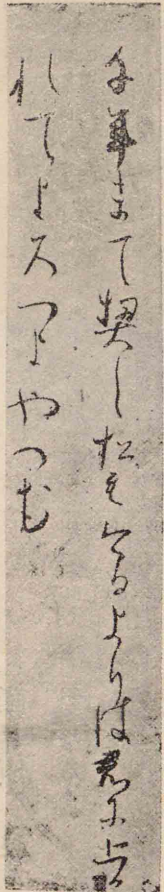 千年まて契し松も今日よりは君にひか
れてよろつよやへむ